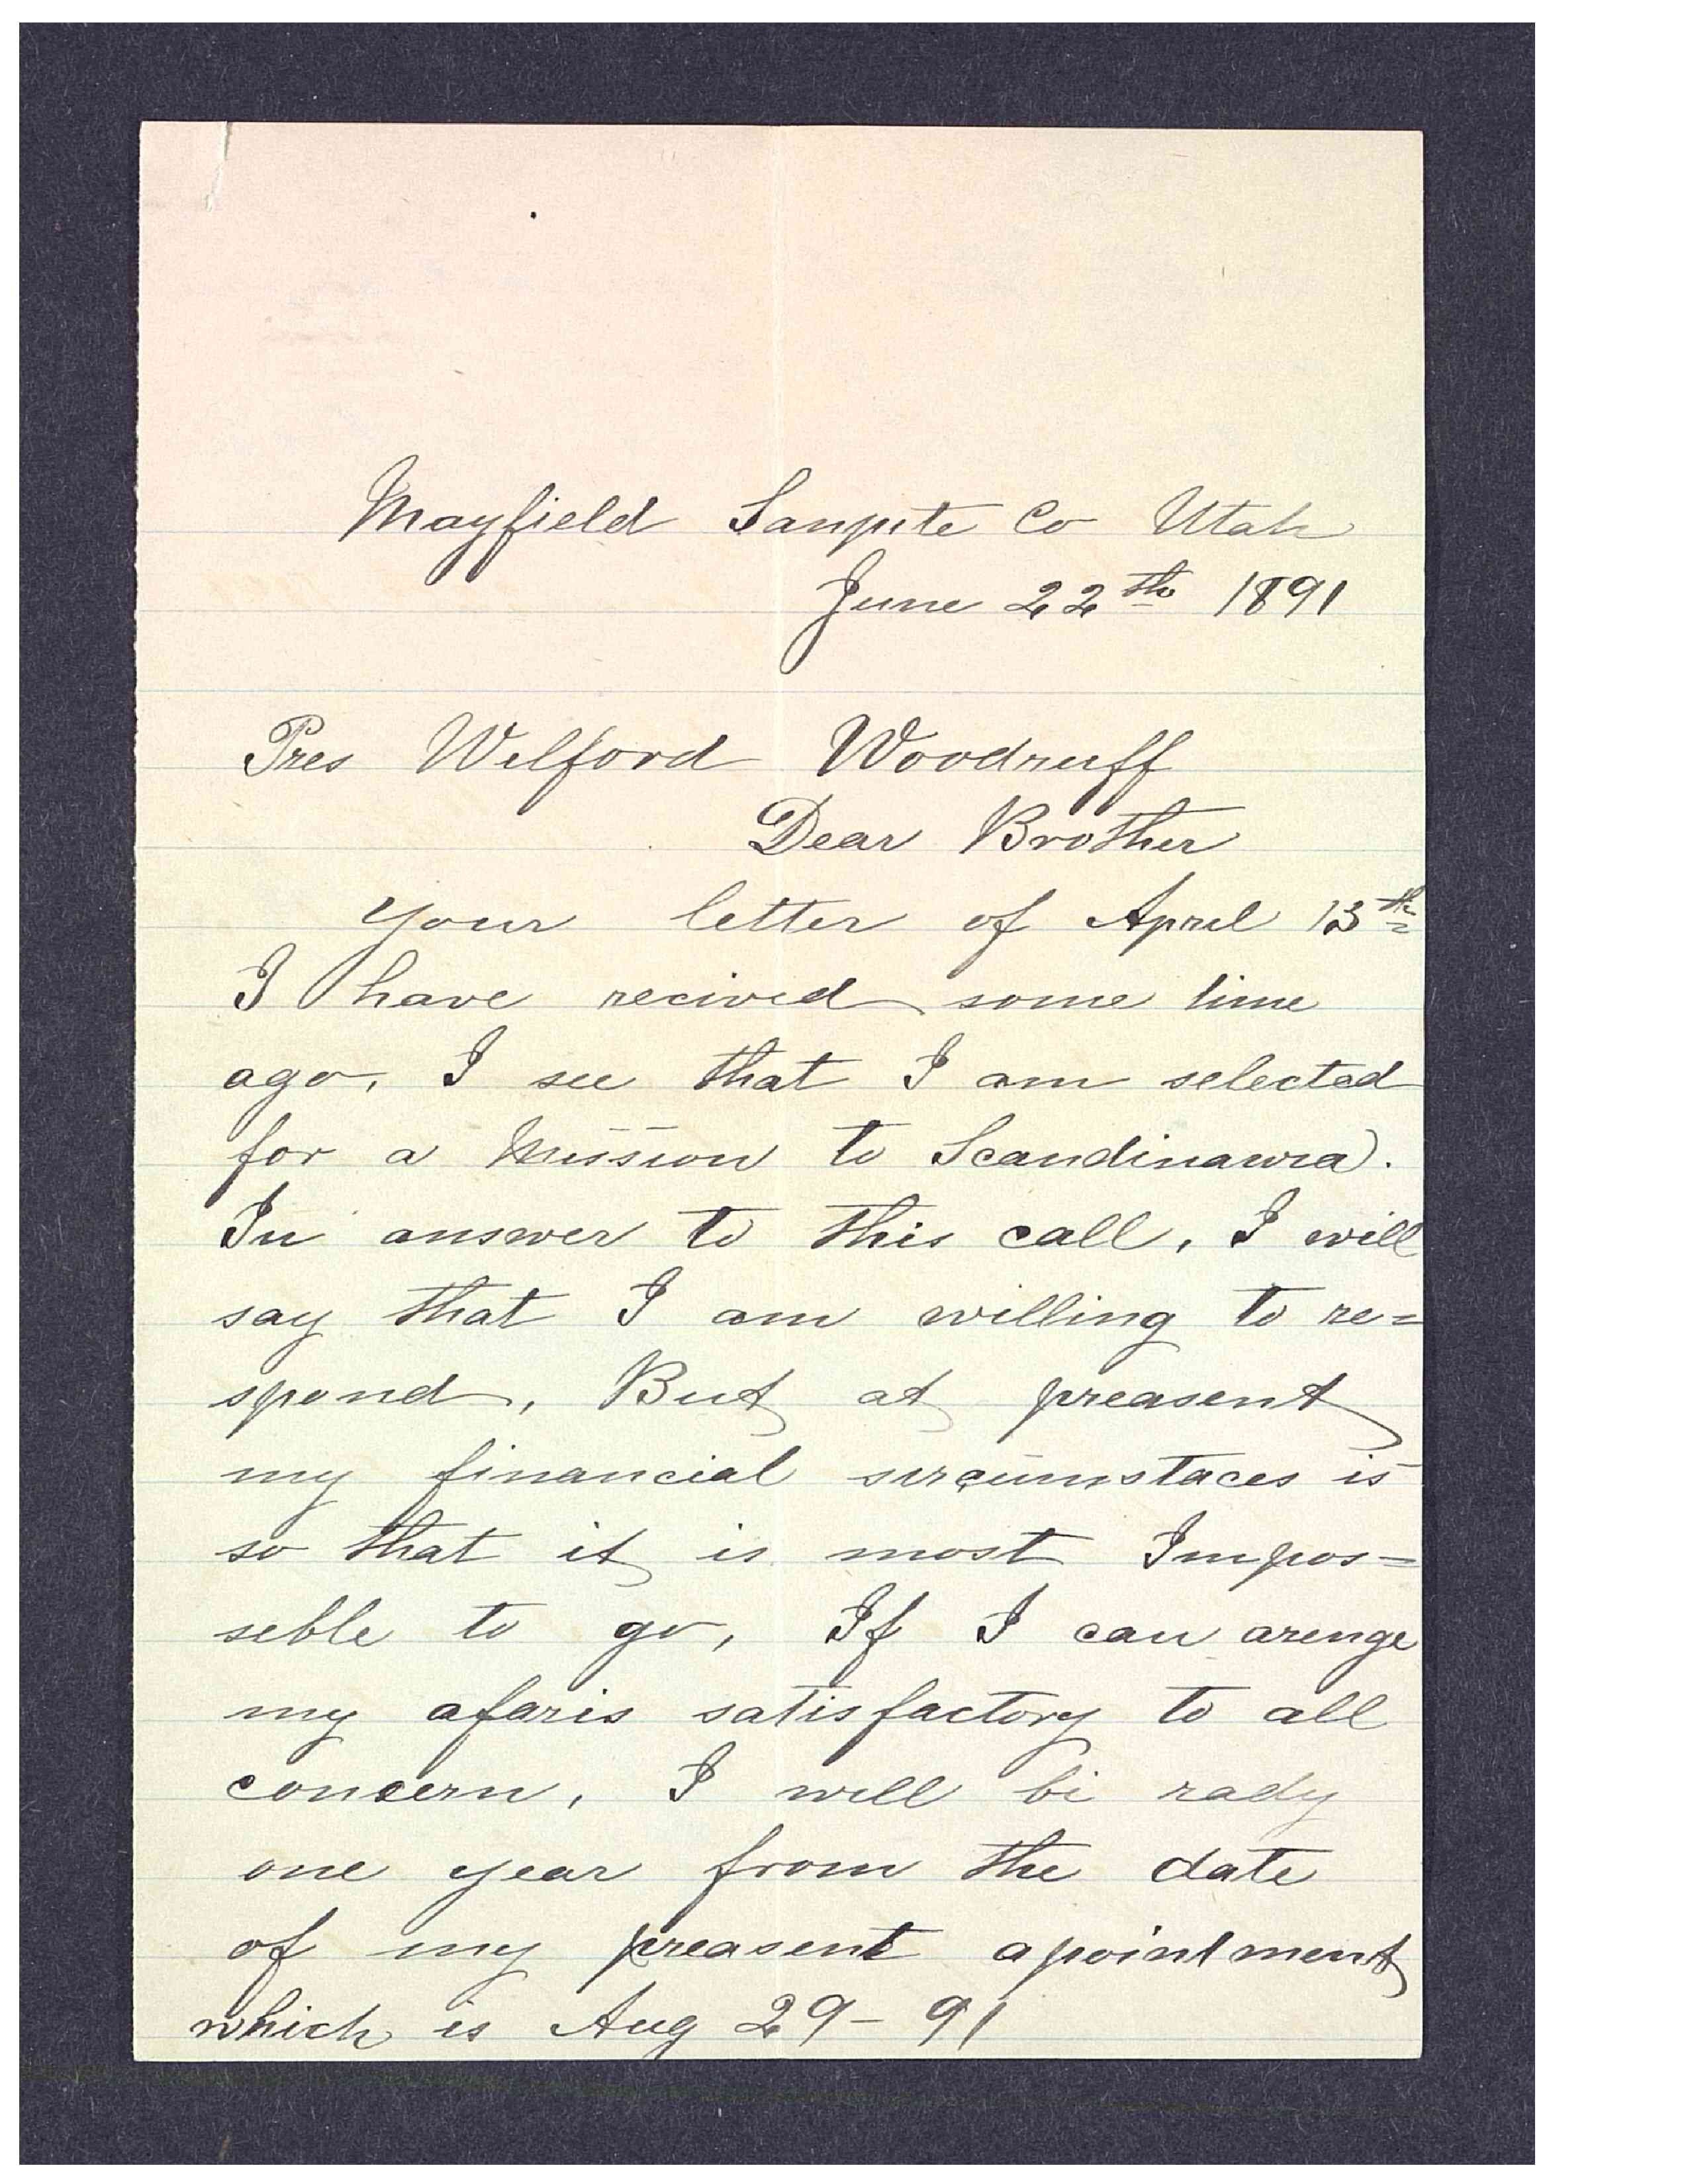 Mayfield Sanpete Co Utah
June 22th 1891
Pres Wilford Woodruff
Dear Brother
Your letter of April 13th
I have recived some time
ago, I see that I am selected
for a Mission to Scandinavia.
In answer to this call, I will
say that I am willing to re=
spond, But at preasent
my financial sircumstaces is
so that it is most Impos=
seble to go, If I can arenge
my afaris satisfactory to all
concern, I will bi rady
one year from the date
of my preasent apointment
which is Aug 29 - 91